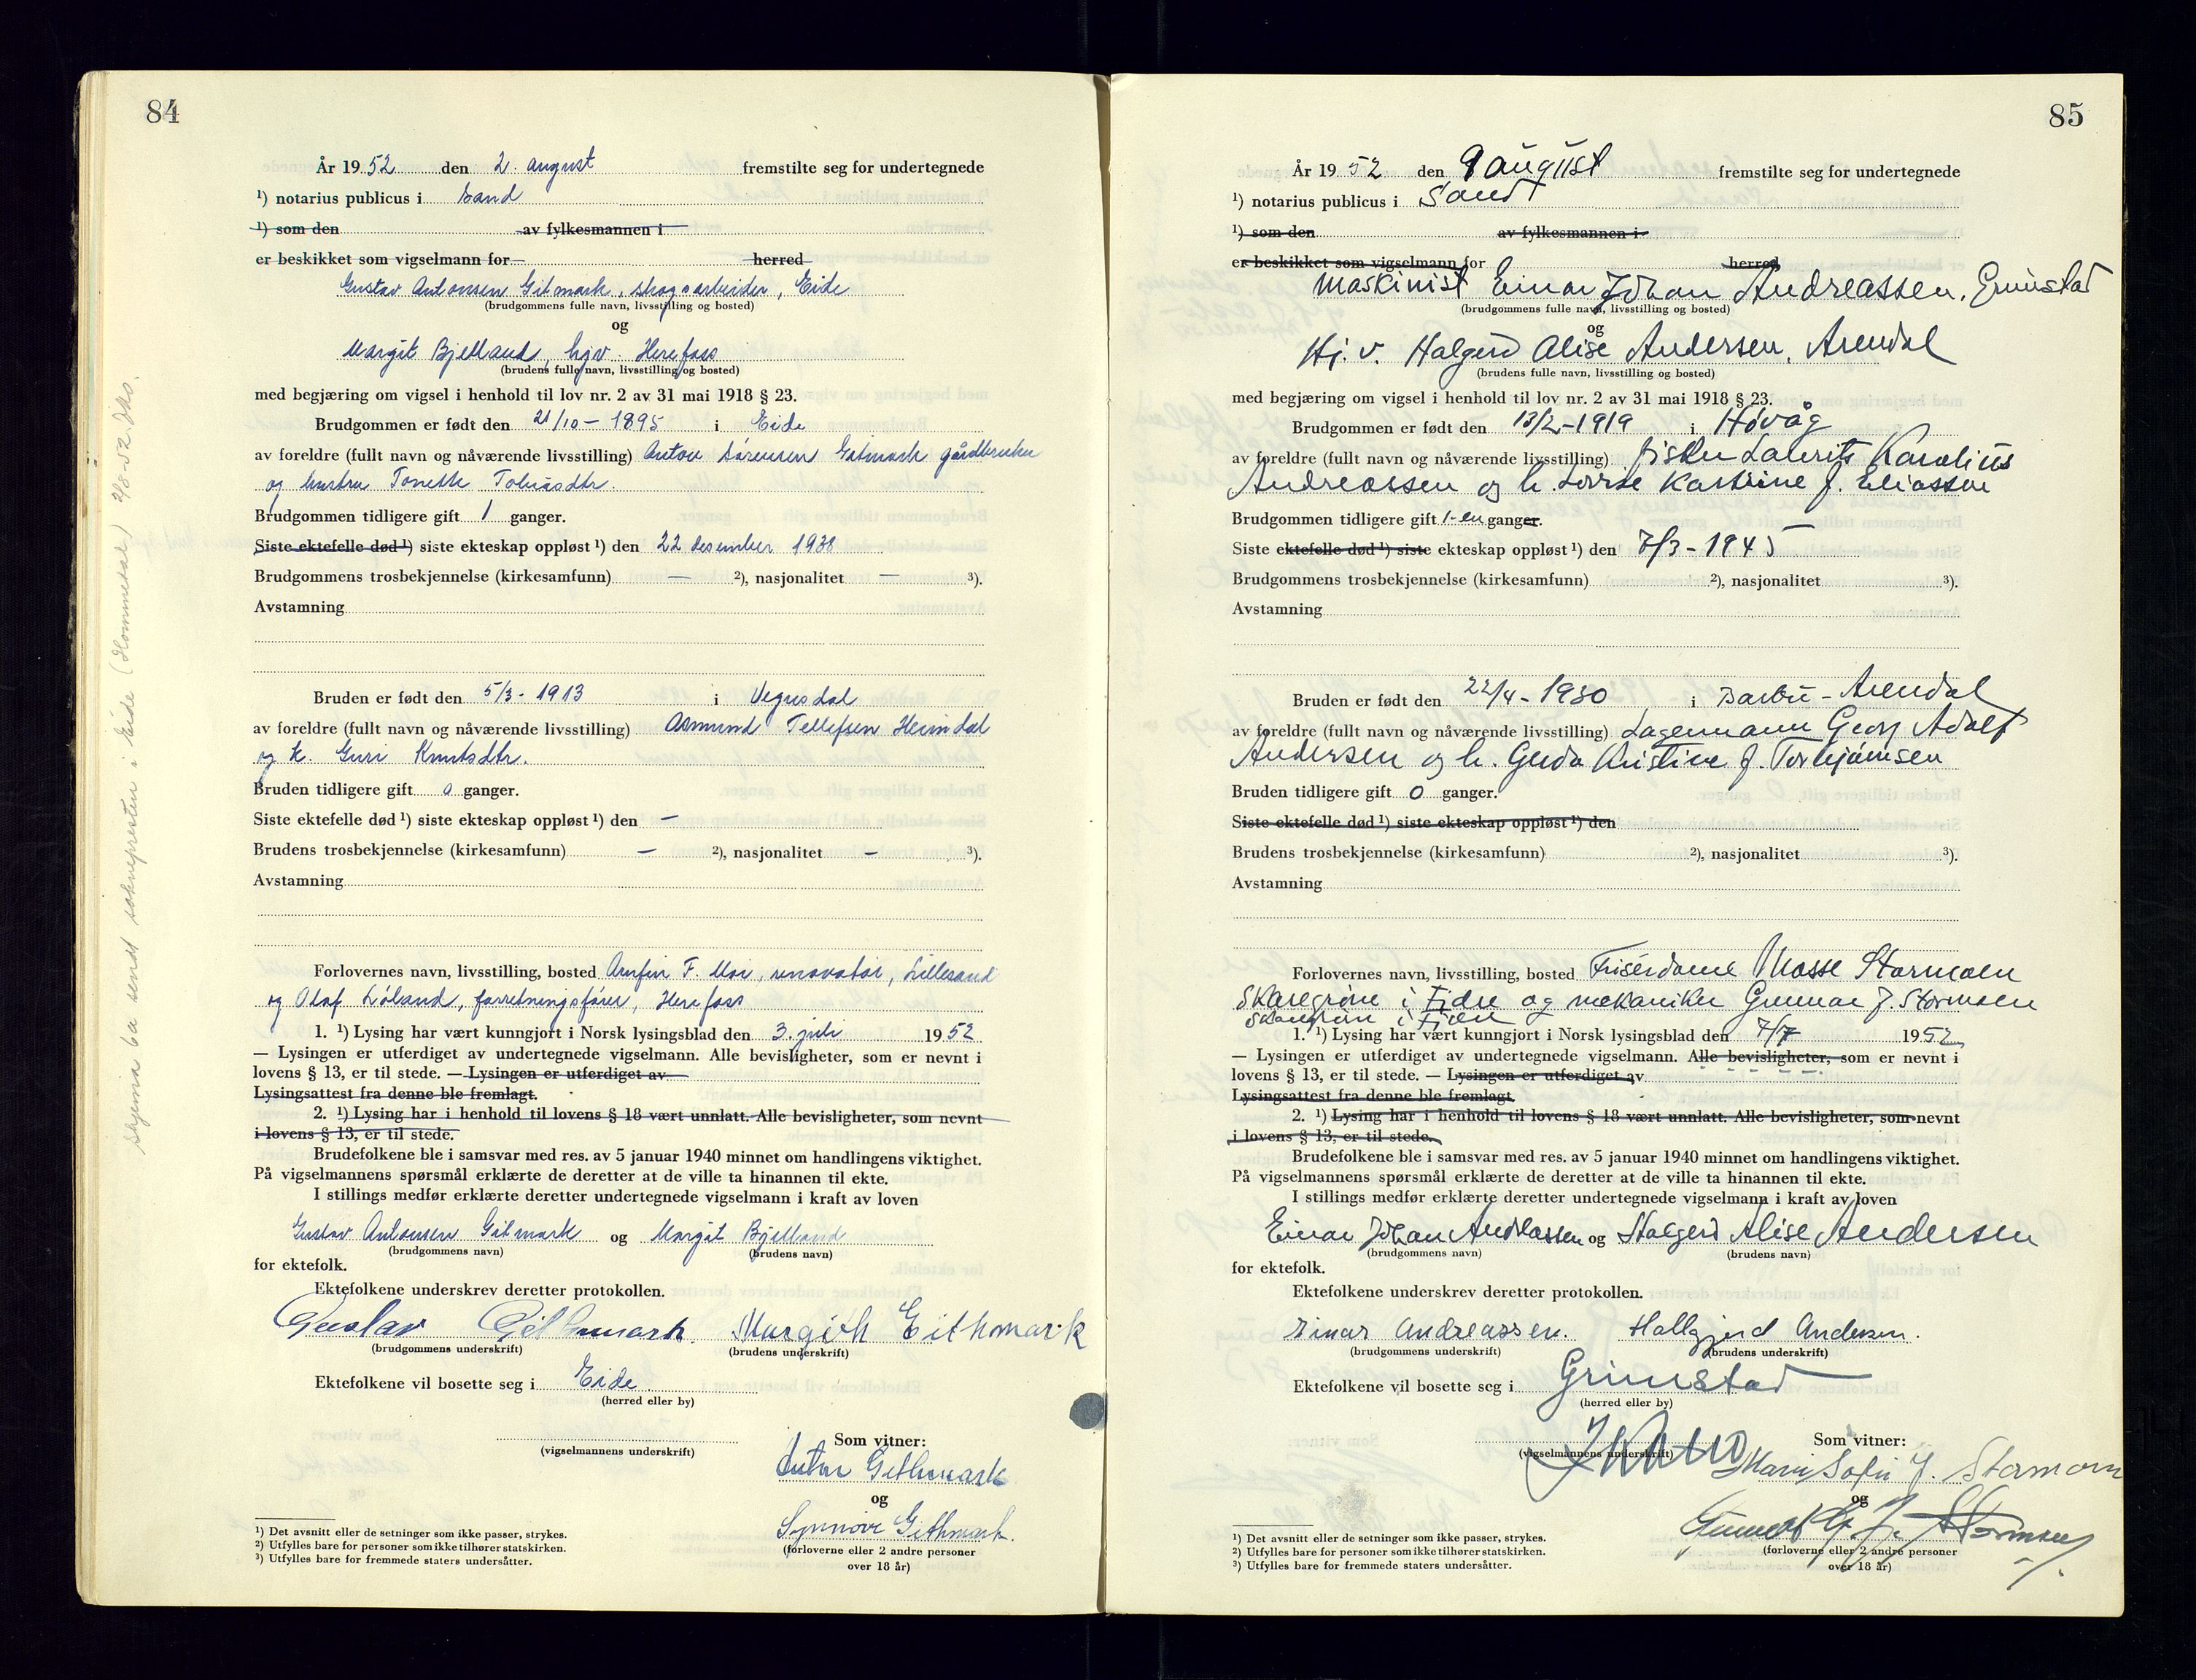 84
År 1952 den 2. august fremstilte seg for undertegnede
¹) notarius publicus i Sand
¹) som den av fylkesmannen i
er beskikket som vigselmann for herred
Gustav Antonsen Gitmark, skogsarbeider, Eide
(brudgommens fulle navn, livsstilling og bosted)
og
Margit Bjelland, hjv. Herefoss
(brudens fulle navn, livsstilling og bosted)
med begjæring om vigsel i henhold til lov nr. 2 av 31 mai 1918 § 23.
Brudgommen er født den 21/10 - 1895 i Eide
av foreldre (fullt navn og nåværende livsstilling) Anton Sørensen Gitmark gårdbruker
og hustru Tonette Tobiasdtr.
Brudgommen tidligere gift 1 ganger.
Siste ektefelle død ¹) siste ekteskap oppløst ¹) den 22 desember 1938
Brudgommens trosbekjennelse (kirkesamfunn) — ²), nasjonalitet — ³).
Avstamning
Bruden er født den 5/3 - 1913 i Vegusdal
av foreldre (fullt navn og nåværende livsstilling) Asmund Tellefsen Heimdal
og h. Guri Knutsdtr.
Bruden tidligere gift 0 ganger.
Siste ektefelle død ¹) siste ekteskap oppløst ¹) den —
Brudens trosbekjennelse (kirkesamfunn) — ²), nasjonalitet — ³).
Avstamning
Forlovernes navn, livsstilling, bosted Arnfin F. Moi, renovatør, Lillesand
og Olaf Løland, forretningsfører, Herefoss
1. ¹) Lysing har vært kunngjort i Norsk lysingsblad den 3. juli 1952
— Lysingen er utferdiget av undertegnede vigselmann. Alle bevisligheter, som er nevnt i
lovens § 13, er til stede. — Lysingen er utferdiget av
Lysingsattest fra denne ble fremlagt.
2. ¹) Lysing har i henhold til lovens § 18 vært unnlatt. Alle bevisligheter, som nevnt
i lovens § 13, er til stede.
Brudefolkene ble i samsvar med res. av 5 januar 1940 minnet om handlingens viktighet.
På vigselmannens spørsmål erklærte de deretter at de ville ta hinannen til ekte.
I stillings medfør erklærte deretter undertegnede vigselmann i kraft av loven
Gustav Antonsen Gitmark og Margit Bjelland
(brudgommens navn) (brudens navn)
for ektefolk.
Ektefolkene underskrev deretter protokollen.
Gustav Githmark. Margith Githmark
(brudgommens underskrift) (brudens underskrift)
Ektefolkene vil bosette seg i Eide
(herred eller by)
Som vitner:
(vigselmannens underskrift)
Anton Githmark
og
Synnøve Githmark.
(forloverne eller 2 andre personer
over 18 år)
¹) Det avsnitt eller de setninger som ikke passer, strykes.
²) Utfylles bare for personer som ikke tilhører statskirken.
³) Utfylles bare for fremmede staters undersåtter.
skjema 6a sendt soknepresten i Eide (Hommedal) 2/8-52
85
År 1952 den 9 august fremstilte seg for undertegnede
¹) notarius publicus i Sand
¹) som den av fylkesmannen i
er beskikket som vigselmann for herred
Maskinist Einar Johan Andreassen, Grimstad
(brudgommens fulle navn, livsstilling og bosted)
og
Hj. v. Halgerd Alise Andersen, Arendal
(brudens fulle navn, livsstilling og bosted)
med begjæring om vigsel i henhold til lov nr. 2 av 31 mai 1918 § 23.
Brudgommen er født den 13/2 - 1919 i Høvåg
av foreldre (fullt navn og nåværende livsstilling) fisker Laurits Karelius
Andreassen og h. Lovise Kastine f. Eliassen
Brudgommen tidligere gift 1-en ganger.
Siste ektefelle død ¹) siste ekteskap oppløst ¹) den 7/3 - 1945
Brudgommens trosbekjennelse (kirkesamfunn) ²), nasjonalitet ³).
Avstamning
Bruden er født den 22/4 - 1930 i Barbu - Arendal
av foreldre (fullt navn og nåværende livsstilling) Lagermann Georg Adolf
Andersen og h. Gerda Kristine f. Torbjørnsen
Bruden tidligere gift 0 ganger.
Siste ektefelle død ¹) siste ekteskap oppløst ¹) den
Brudens trosbekjennelse (kirkesamfunn) ²), nasjonalitet ³).
Avstamning
Forlovernes navn, livsstilling, bosted Frisérdame Mosse Stormoen
Skaregrøm i Fjære og mekaniker Gunnar J. Stormoen
Skaregrøm i Fjære
1. ¹) Lysing har vært kunngjort i Norsk lysingsblad den 7/7 1952
— Lysingen er utferdiget av undertegnede vigselmann. Alle bevisligheter, som er nevnt i
lovens § 13, er til stede. — Lysingen er utferdiget av
Lysingsattest fra denne ble fremlagt.
2. ¹) Lysing har i henhold til lovens § 18 vært unnlatt. Alle bevisligheter, som nevnt
i lovens § 13, er til stede.
Brudefolkene ble i samsvar med res. av 5 januar 1940 minnet om handlingens viktighet.
På vigselmannens spørsmål erklærte de deretter at de ville ta hinannen til ekte.
I stillings medfør erklærte deretter undertegnede vigselmann i kraft av loven
Einar Johan Andreassen og Halgerd Alise Andersen
(brudgommens navn) (brudens navn)
for ektefolk.
Ektefolkene underskrev deretter protokollen.
Einar Andreassen. Hallgjerd Andersen.
(brudgommens underskrift) (brudens underskrift)
Ektefolkene vil bosette seg i Grimstad
(herred eller by)
Som vitner:
(vigselmannens underskrift)
Stormoen
og
Stormoen
(forloverne eller 2 andre personer
over 18 år)
¹) Det avsnitt eller de setninger som ikke passer, strykes.
²) Utfylles bare for personer som ikke tilhører statskirken.
³) Utfylles bare for fremmede staters undersåtter.